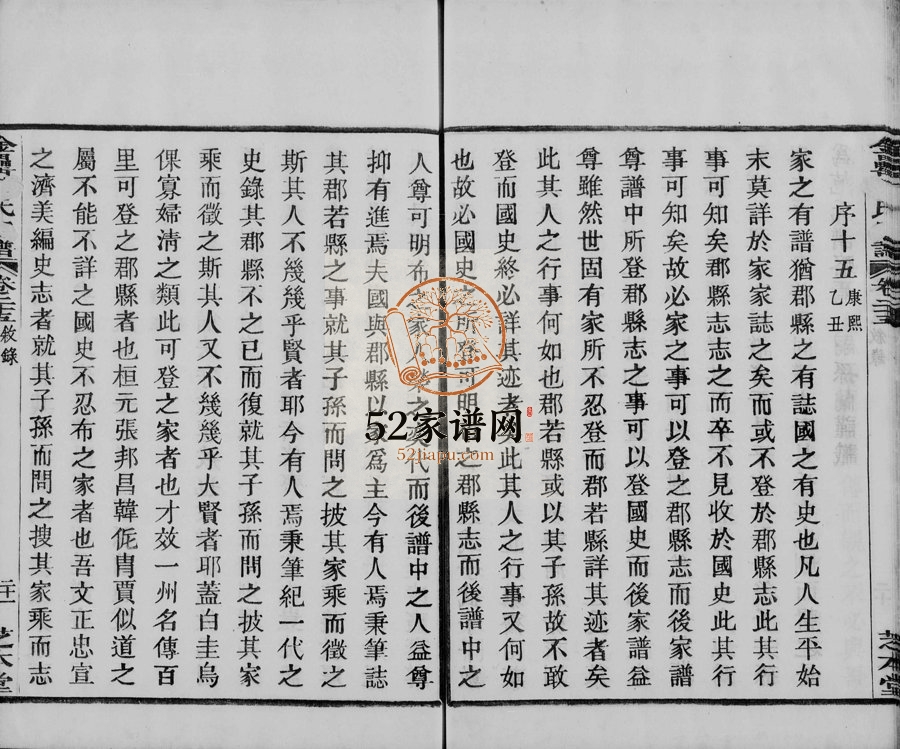 序十五 康熙乙丑
家之有譜猶郡縣之有誌國之有史也凡人生平始
末莫詳於家家誌之矣而或不登於郡縣志此其行
事可知矣郡縣志之而卒不見收於國史此其行
事可知矣故必家之事可以登之郡縣志而後家譜
尊譜中所登郡縣志之事可以登國史而後家譜益
尊雖然世固有家所不忍登而郡若縣詳其迹者矣
此其人之行事何如也郡若縣或以其子孫故不敢
登而國史終必詳其迹者矣此其人之行事又何如
也故必國史之所登可明之郡縣志而後譜中之
人尊可明布家人之代而後譜中之人益尊
抑有進焉夫國與郡縣以爲主今有人焉秉筆誌
其郡若縣之事就其子孫而問之披其家乘而徵之
斯其人不幾幾乎賢者耶今有人焉秉筆紀一代之
史錄其郡縣不之已而復就其子孫而問之披其家
乘而徵之斯其人又不幾幾乎大賢者耶蓋白圭烏
倮寡婦淸之類此可登之家者也才效一州名傳百
里可登之郡縣者也桓元張邦昌韓侂冑賈似道之
屬不能不詳之國史不忍布之家者也吾文正忠宣
之濟美編史志者就其子孫而問之搜其家乘而志
氏譜卷敘錄
芝本堂
52家谱网
52jiapu.com